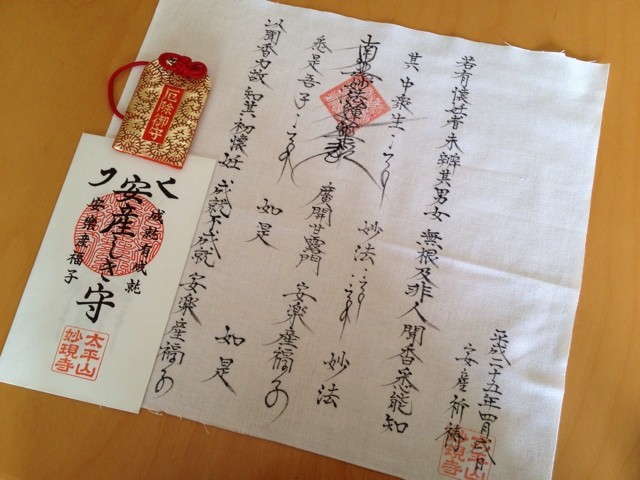 厄除御守
安産しき守
成就有成就
安樂産福子
太平山
妙現寺
若有懐妊者未辨其男女 無根及非人 聞香悉能知
其中衆生 妙法 妙法
南無妙法蓮華経
悉是吾子 廣開甘露門 安樂産福子
如是 如是
以聞香力故 知其初懐妊 成就不成就 安樂産福子
平成二十五年四月弐日
安産祈祷
太平山
妙現寺